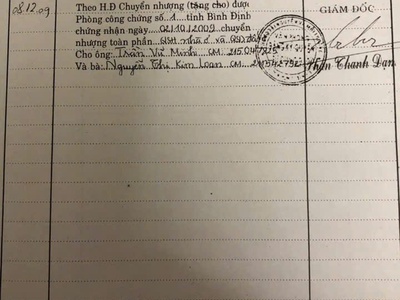 08.12.09
Theo H.Đ Chuyển nhượng (tặng cho) được
Phòng công chứng số 1 tỉnh Bình Định
chứng nhận ngày 02/10/2009 chuyển
nhượng toàn phần QSH nhà ở và QSD đất
Cho ông: Trần Vũ Minh CM 215047
Và bà: Nguyễn Thị Kim Loan CM
GIÁM ĐỐC
Thanh Dạn